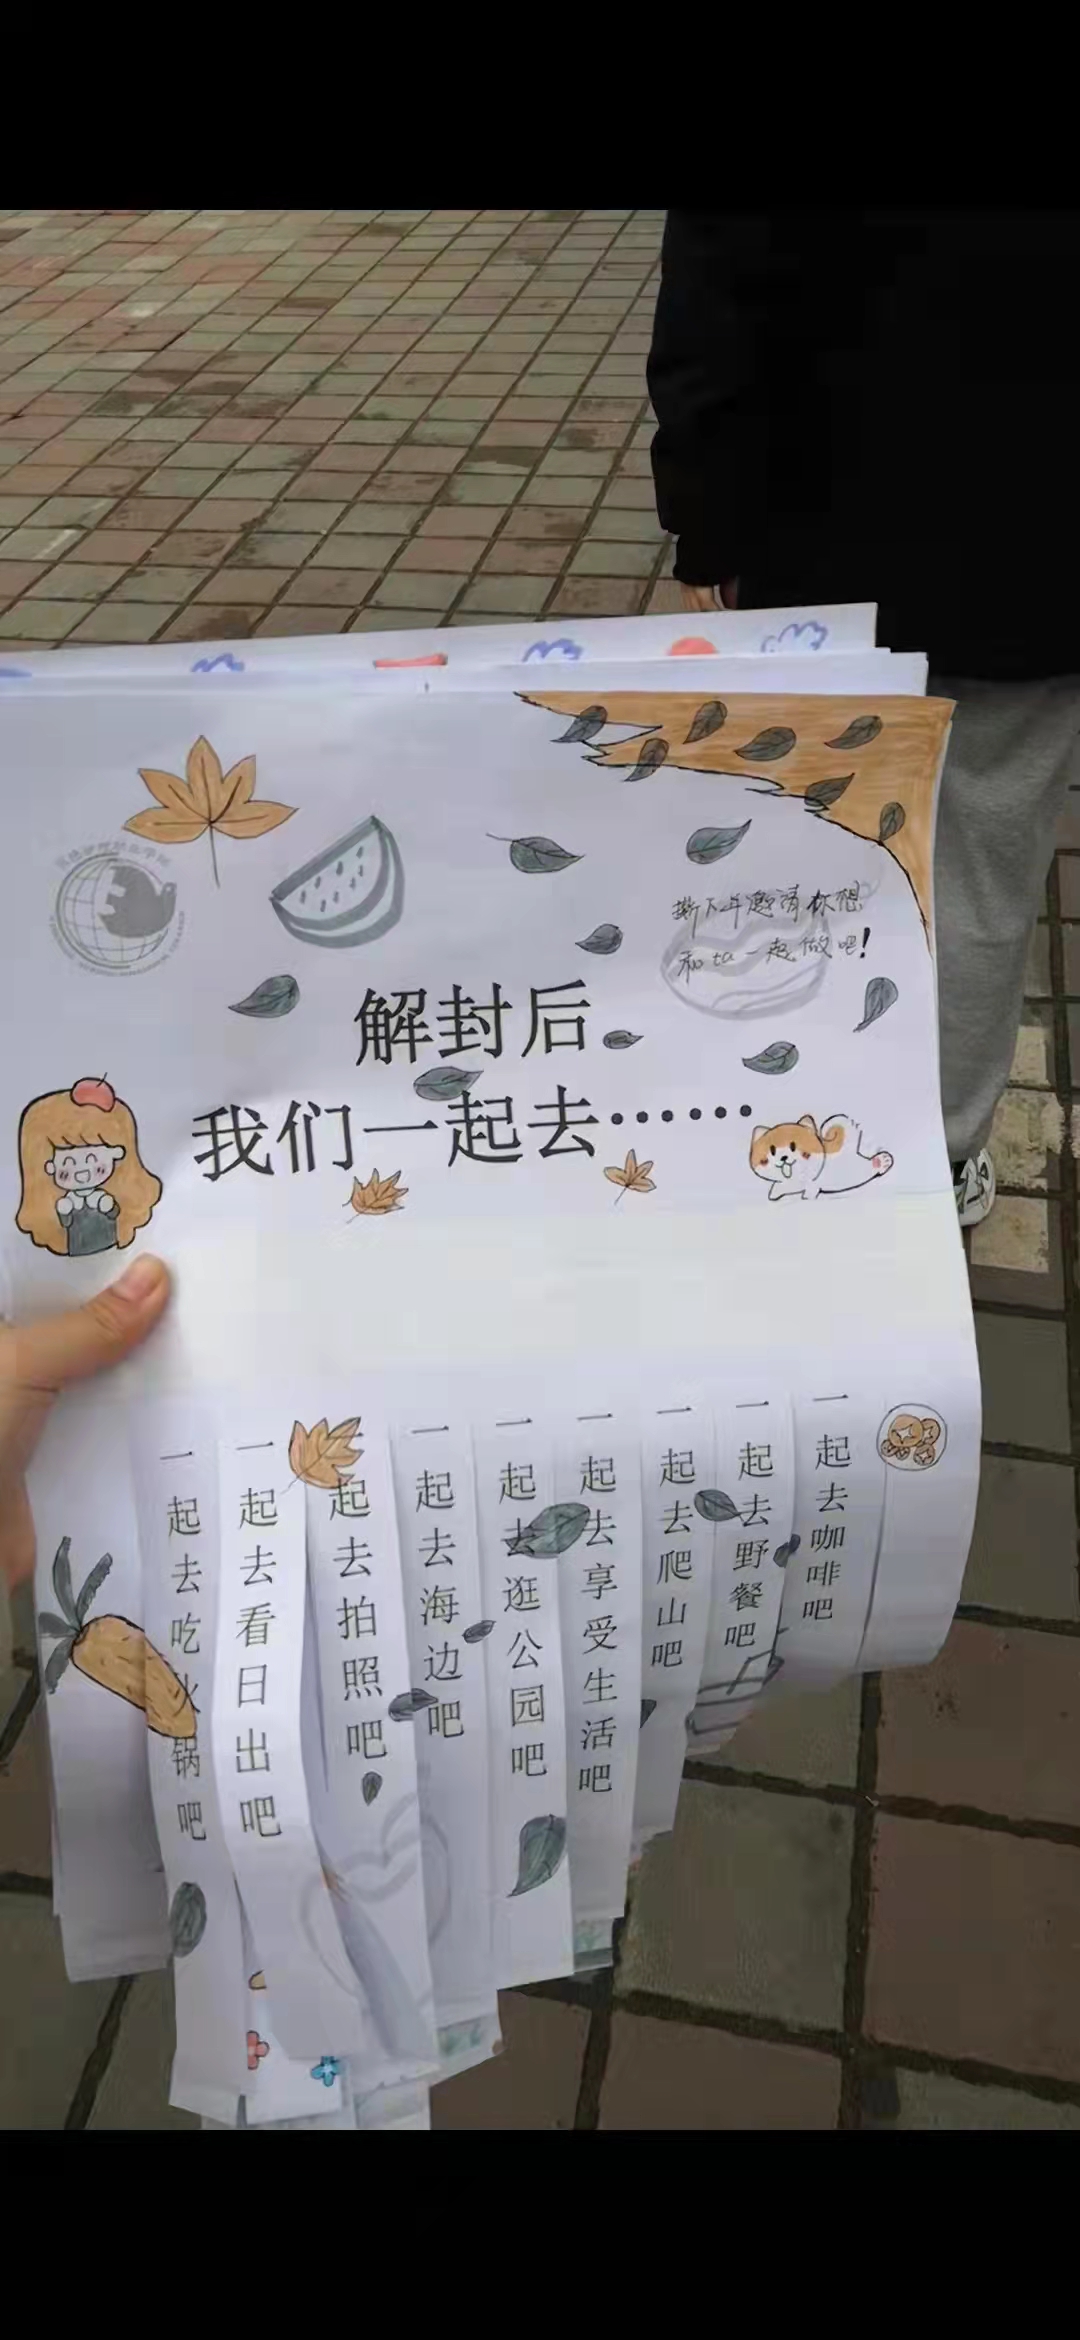 撕下并邀请你想
和ta一起做吧！
解封后
我们一起去……
一起去吃火锅吧
一起去看日出吧
起去拍照吧
一起去海边吧
一起去逛公园吧
一起去享受生活吧
一起去爬山吧
一起去野餐吧
一起去咖啡吧